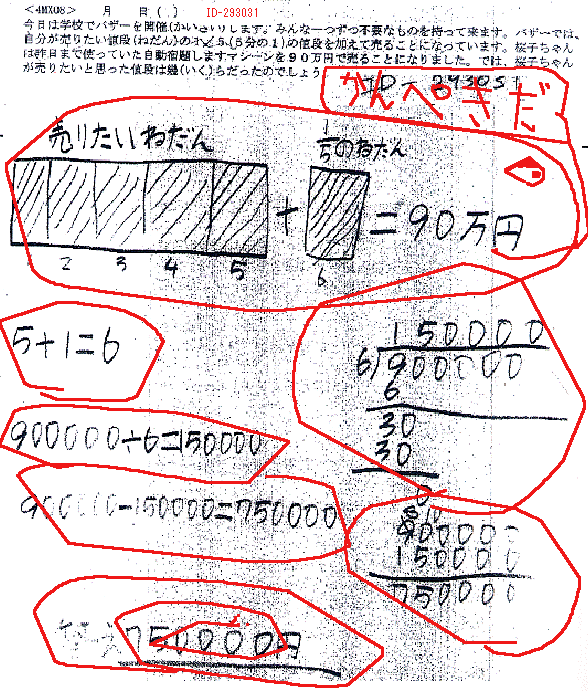 <4MX08> 月 日( ) ID-293031
今日は学校でバザーを開催(かいさい)します。みんな一つずつ不要なものを持って来ます。バザーでは、
自分が売りたい値段(ねだん)の1/5(5分の1)の値段を加えて売ることになっています。桜子ちゃん
は昨日まで使っていた自動宿題しますマシーンを90万円で売ることになりました。では、桜子ちゃん
が売りたいと思った値段は幾(いく)らだったのでしょう
ID-293031
かんぺきだ
売りたいねだん
1/5のねだん
+ =90万円
1 2 3 4 5 6
5+1=6
150000
6)900000
6
30
30
0
900000÷6=150000
900000-150000=750000
900000
150000
750000
750000円